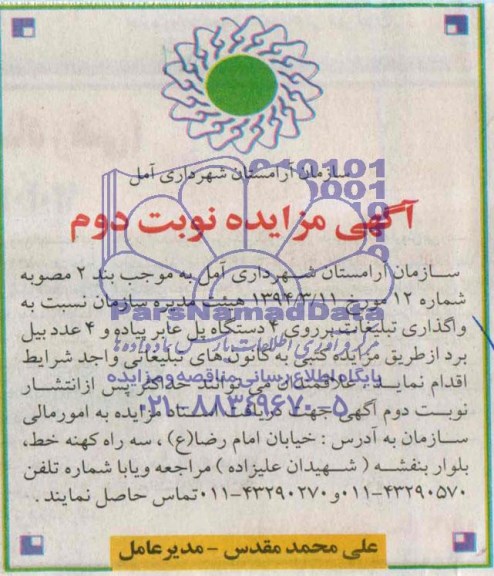 سازمان آرامستان شهرداری آمل
آگهی مزایده نوبت دوم
سازمان آرامستان شهرداری آمل به موجب بند ۲ مصوبه
شماره ۱۲ مورخ ۱۳۹۴/۳/۱۱ هیئت مدیره سازمان نسبت به
واگذاری تبلیغات برروی ۴ دستگاه پل عابر پیاده و ۴ عدد بیل
برد ازطریق مزایده کتبی به کانون های تبلیغاتی واجد شرایط
اقدام نماید. علاقمندان می توانند حداکثر پس ازانتشار
نوبت دوم آگهی جهت دریافت اسناد مزایده به امورمالی
سازمان به آدرس : خیابان امام رضا(ع) ، سه راه کهنه خط،
بلوار بنفشه ( شهیدان علیزاده ) مراجعه ویابا شماره تلفن
۰۱۱-۴۳۲۹۰۵۷۰و ۰۱۱-۴۳۲۹۰۲۷۰تماس حاصل نمایند .
علی محمد مقدس - مدیرعامل
ParsNamadData
مرکز فرآوری اطلاعات پارس نماد داده ها
پایگاه اطلاع رسانی مناقصه و مزایده
۰۲۱-۸۸۳۴۹۶۷۰-۵